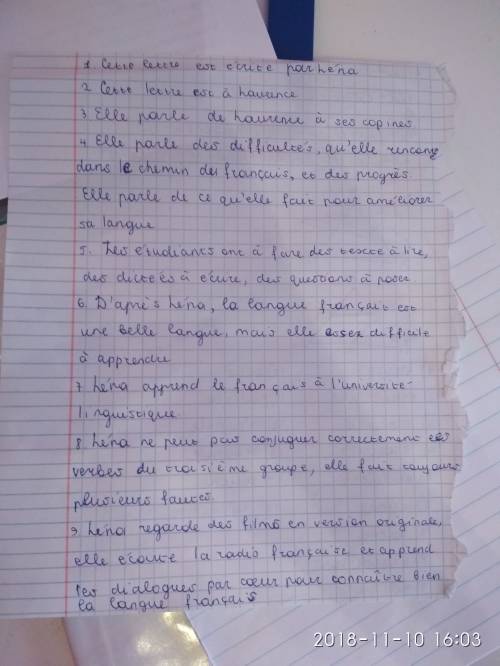 1 Cette lettre est écrite par Léna
2 Cette lettre est à Laurence
3 Elle parle de Laurence à ses copines
4 Elle parle des difficultés, qu'elle rencong
dans le chemin du français, et des progrès.
Elle parle de ce qu'elle fait pour améliorer
sa langue
5. Les étudiants ont à faire des texte à lire,
des dictées à écrire, des questions à poser
6. D'après Léna, la langue français est
une belle langue, mais elle assez difficile
à apprendre
7 Léna apprend le français à l'université
linguistique.
8 Léna ne peut pas conjuguer correctement les
verbes du troisième groupe, elle fait toujours
plusieurs fautes.
9. Léna regarde des films en version originale,
elle écoute la radio française et apprend
les dialogues par cœur pour connaître bien
la langue français
2018-11-10 16:03